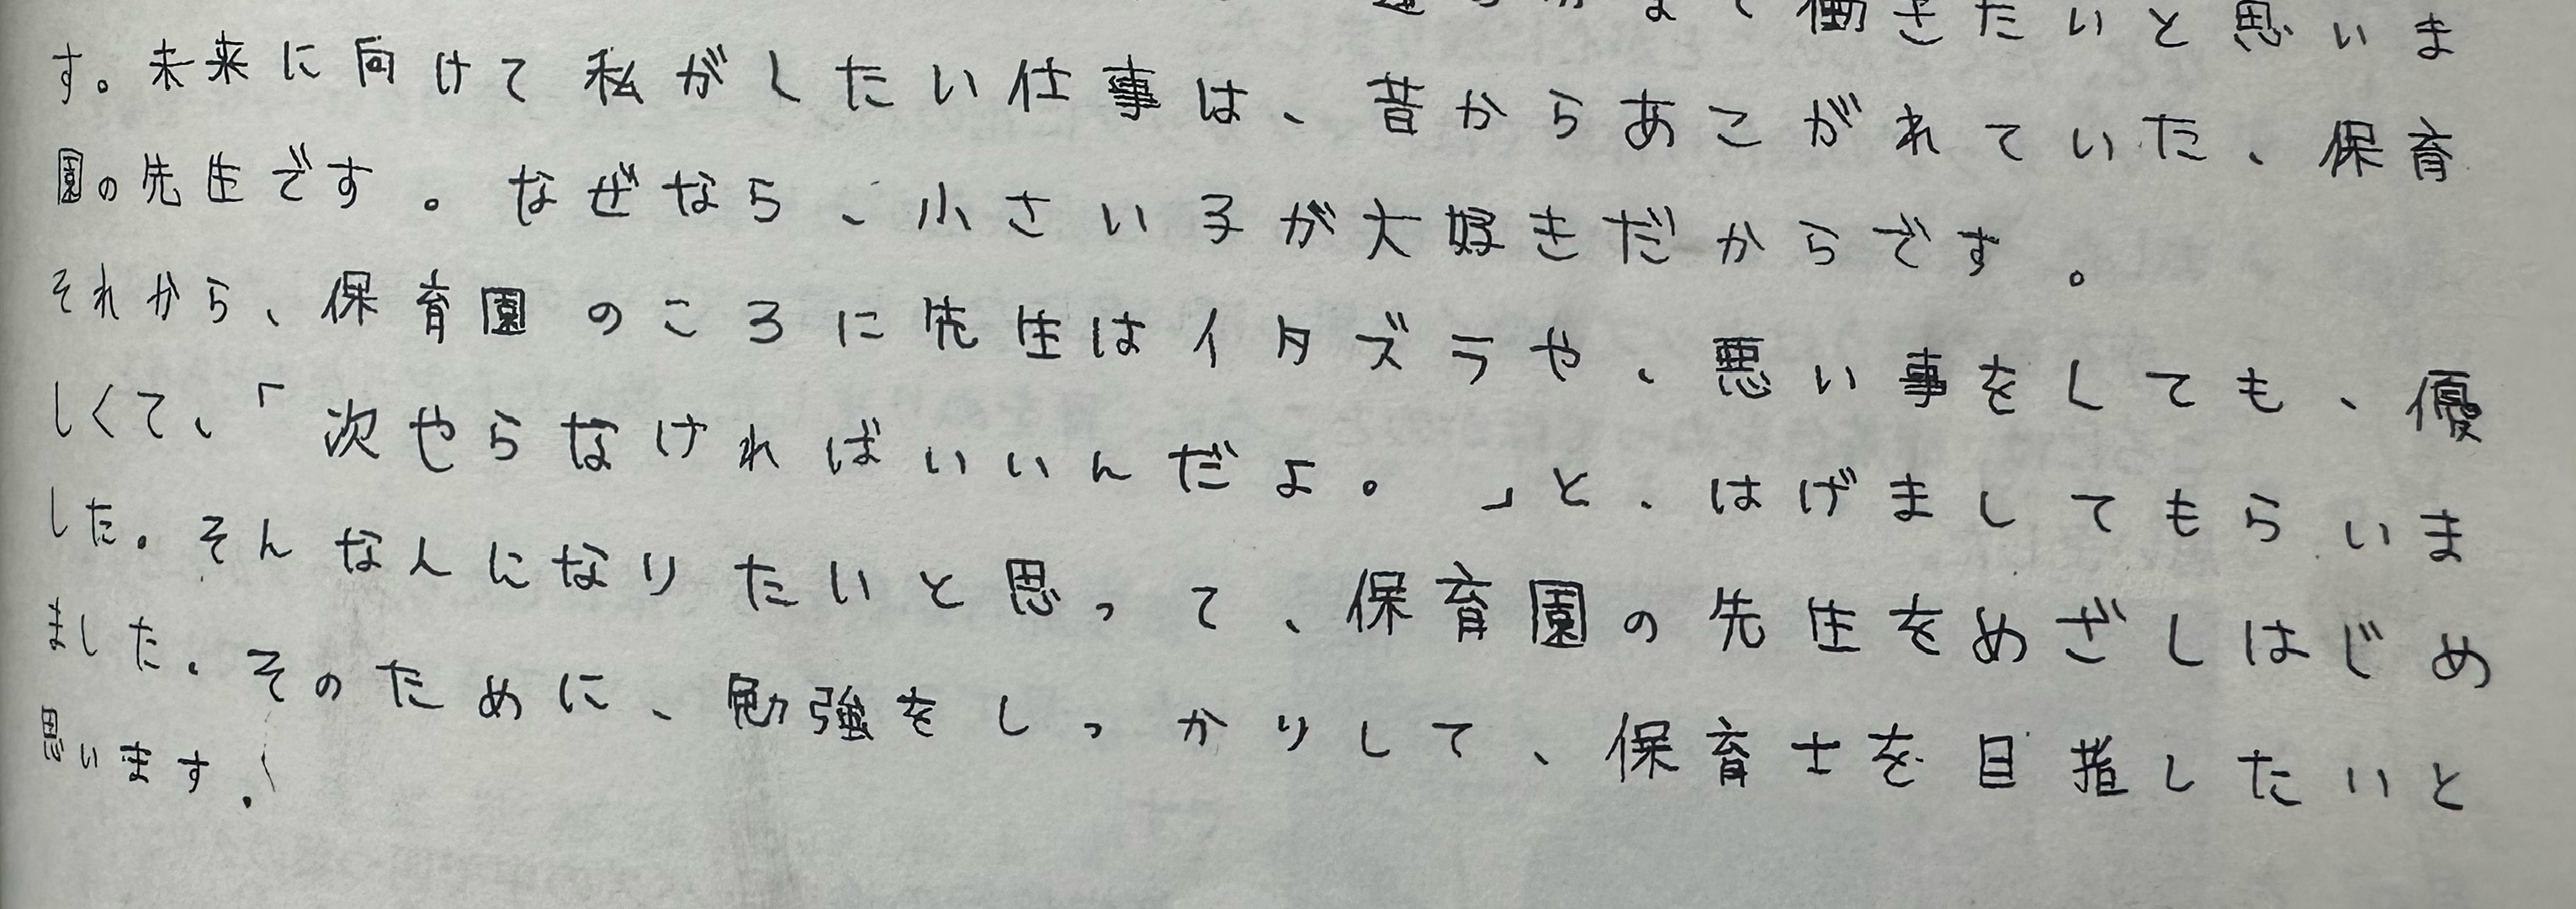 働きたいと思いま
す。未来に向けて私がしたい仕事は、昔からあこがれていた、保育
園の先生です。なぜなら、小さい子が大好きだからです。
それから、保育園のころに先生はイタズラや、悪い事をしても、優
しくて、「次やらなければいいんだよ。」と、はげましてもらいま
した。そんな人になりたいと思って、保育園の先生をめざしはじめ
ました。そのために、勉強をしっかりして、保育士を目指したいと
思います。